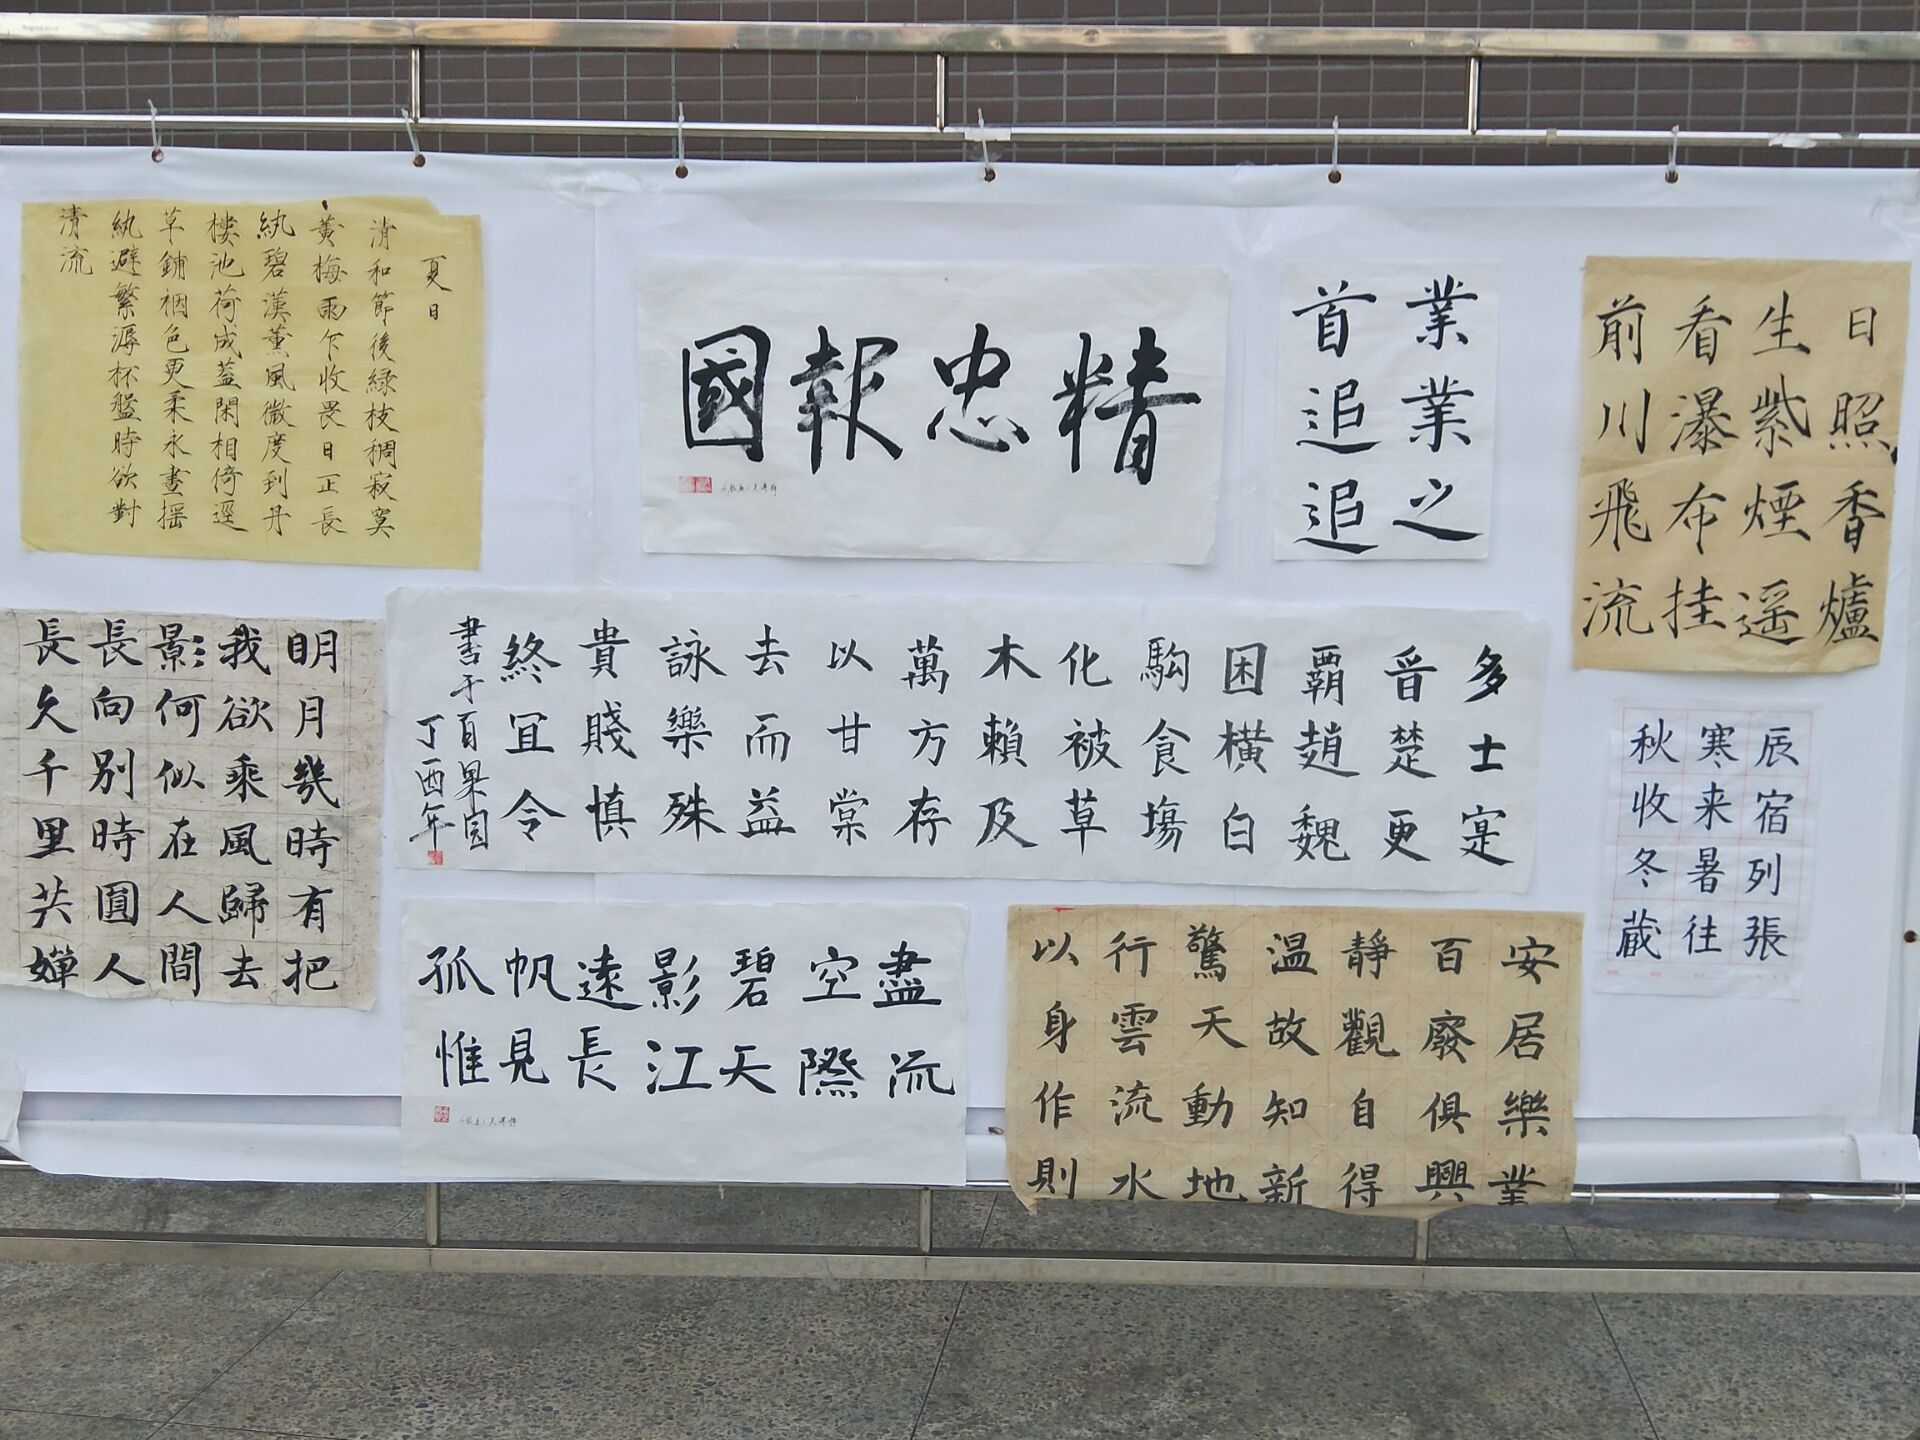 夏日
清和節後緑枝稠寂寞
黄梅雨乍收畏日正長
紈碧漢薰風微度到丹
樓池荷成蓋閑相倚逕
草鋪裀色更柔永晝揺
紈避繁溽杯盤時欲對
清流
精忠報國
業業之
首追追
日照香爐
生紫煙遥
看瀑布挂
前川飛流
明月幾時有把
我欲乘風歸去
影何似在人間
長向别時圓人
長久千里共嬋
多士寔
晋楚更
覇趙魏
困横白
駒食場
化被草
木賴及
萬方存
以甘棠
去而益
詠樂殊
貴賤慎
終宜令
書于百果园
丁酉年
辰宿列張
寒来暑往
秋收冬藏
盡流
空際
碧天
影江
遠長
帆見
孤惟
安居樂業
百廢俱興
靜觀自得
温故知新
驚天動地
行雲流水
以身作則